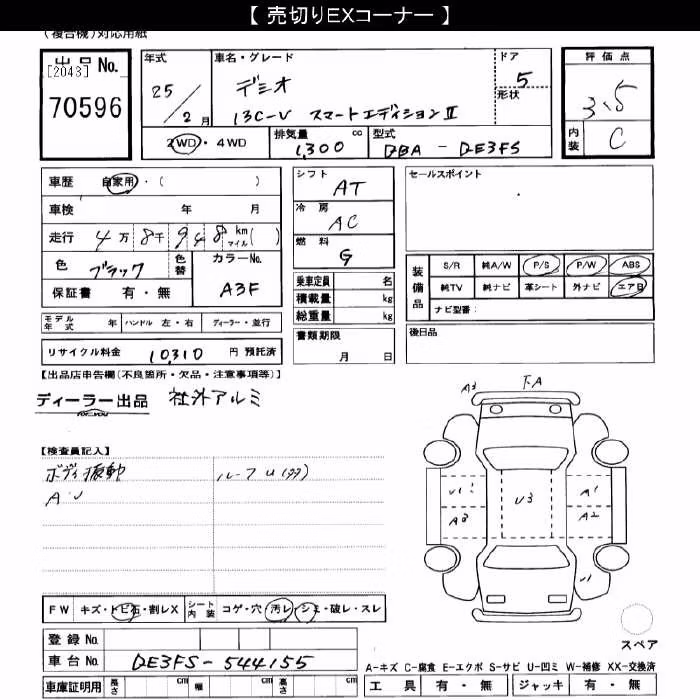 【 売切りEXコーナー 】
(複合機)対応用紙
出品 No.
[2043]
70596
年式
25 / 2 月
車名・グレード
デミオ
13C-V スマートエディションⅡ
ドア
5
形状
評価点
3.5
内装
C
2WD・4WD
排気量
1,300 cc
型式
DBA - DE3FS
車歴 自家用・( )
車検 年 月
走行 4万 8千 948 km マイル( )
色 ブラック
色替
カラーNo.
A3F
保証書 有・無
シフト
AT
冷房
AC
燃料
G
乗車定員 名
積載量 kg
総重量 kg
セールスポイント
装備品
S/R 純A/W P/S P/W ABS
純TV 純ナビ 革シート 外ナビ エアB
ナビ型番:
モデル年式 年 ハンドル 左・右 ディーラー・並行
リサイクル料金 10,310 円 預託済
書類期限
月 日
後日品
【出品店申告欄(不良箇所・欠品・注意事項等)】
ディーラー出品 社外アルミ
FOR YOU
【検査員記入】
ボディ振動
AU
ルーフU(多)
A3
F.A
U3
A1
A2
A3
FW キズ・トビ石・割レX
シート内装 コゲ・穴・汚レ・シミ・破レ・スレ
登録 No.
車台 No. DE3FS-544155
車庫証明用 長さ cm 幅 cm 高さ cm
スペア
A-キズ C-腐食 E-エクボ S-サビ U-凹ミ W-補修 XX-交換済
工具 有・無 ジャッキ 有・無